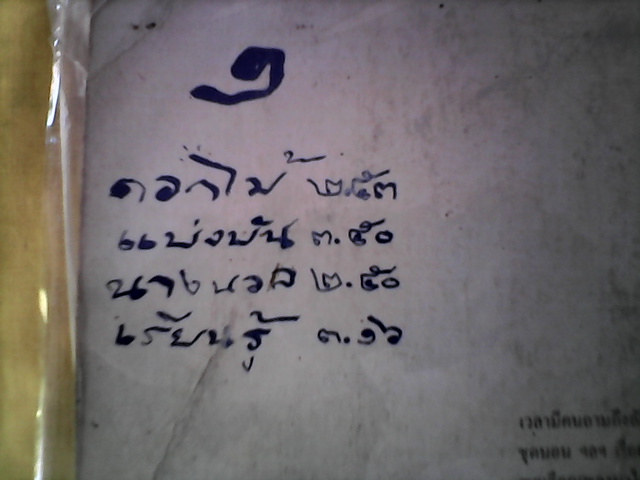 ๑
ดอกไม้ ๒.๕๓
แบ่งปัน ๓.๕๐
นางนวล ๒.๕๐
เรียนรู้ ๓.๑๖
เวลามีคนถามถึง
ชุดนอน ฯลฯ